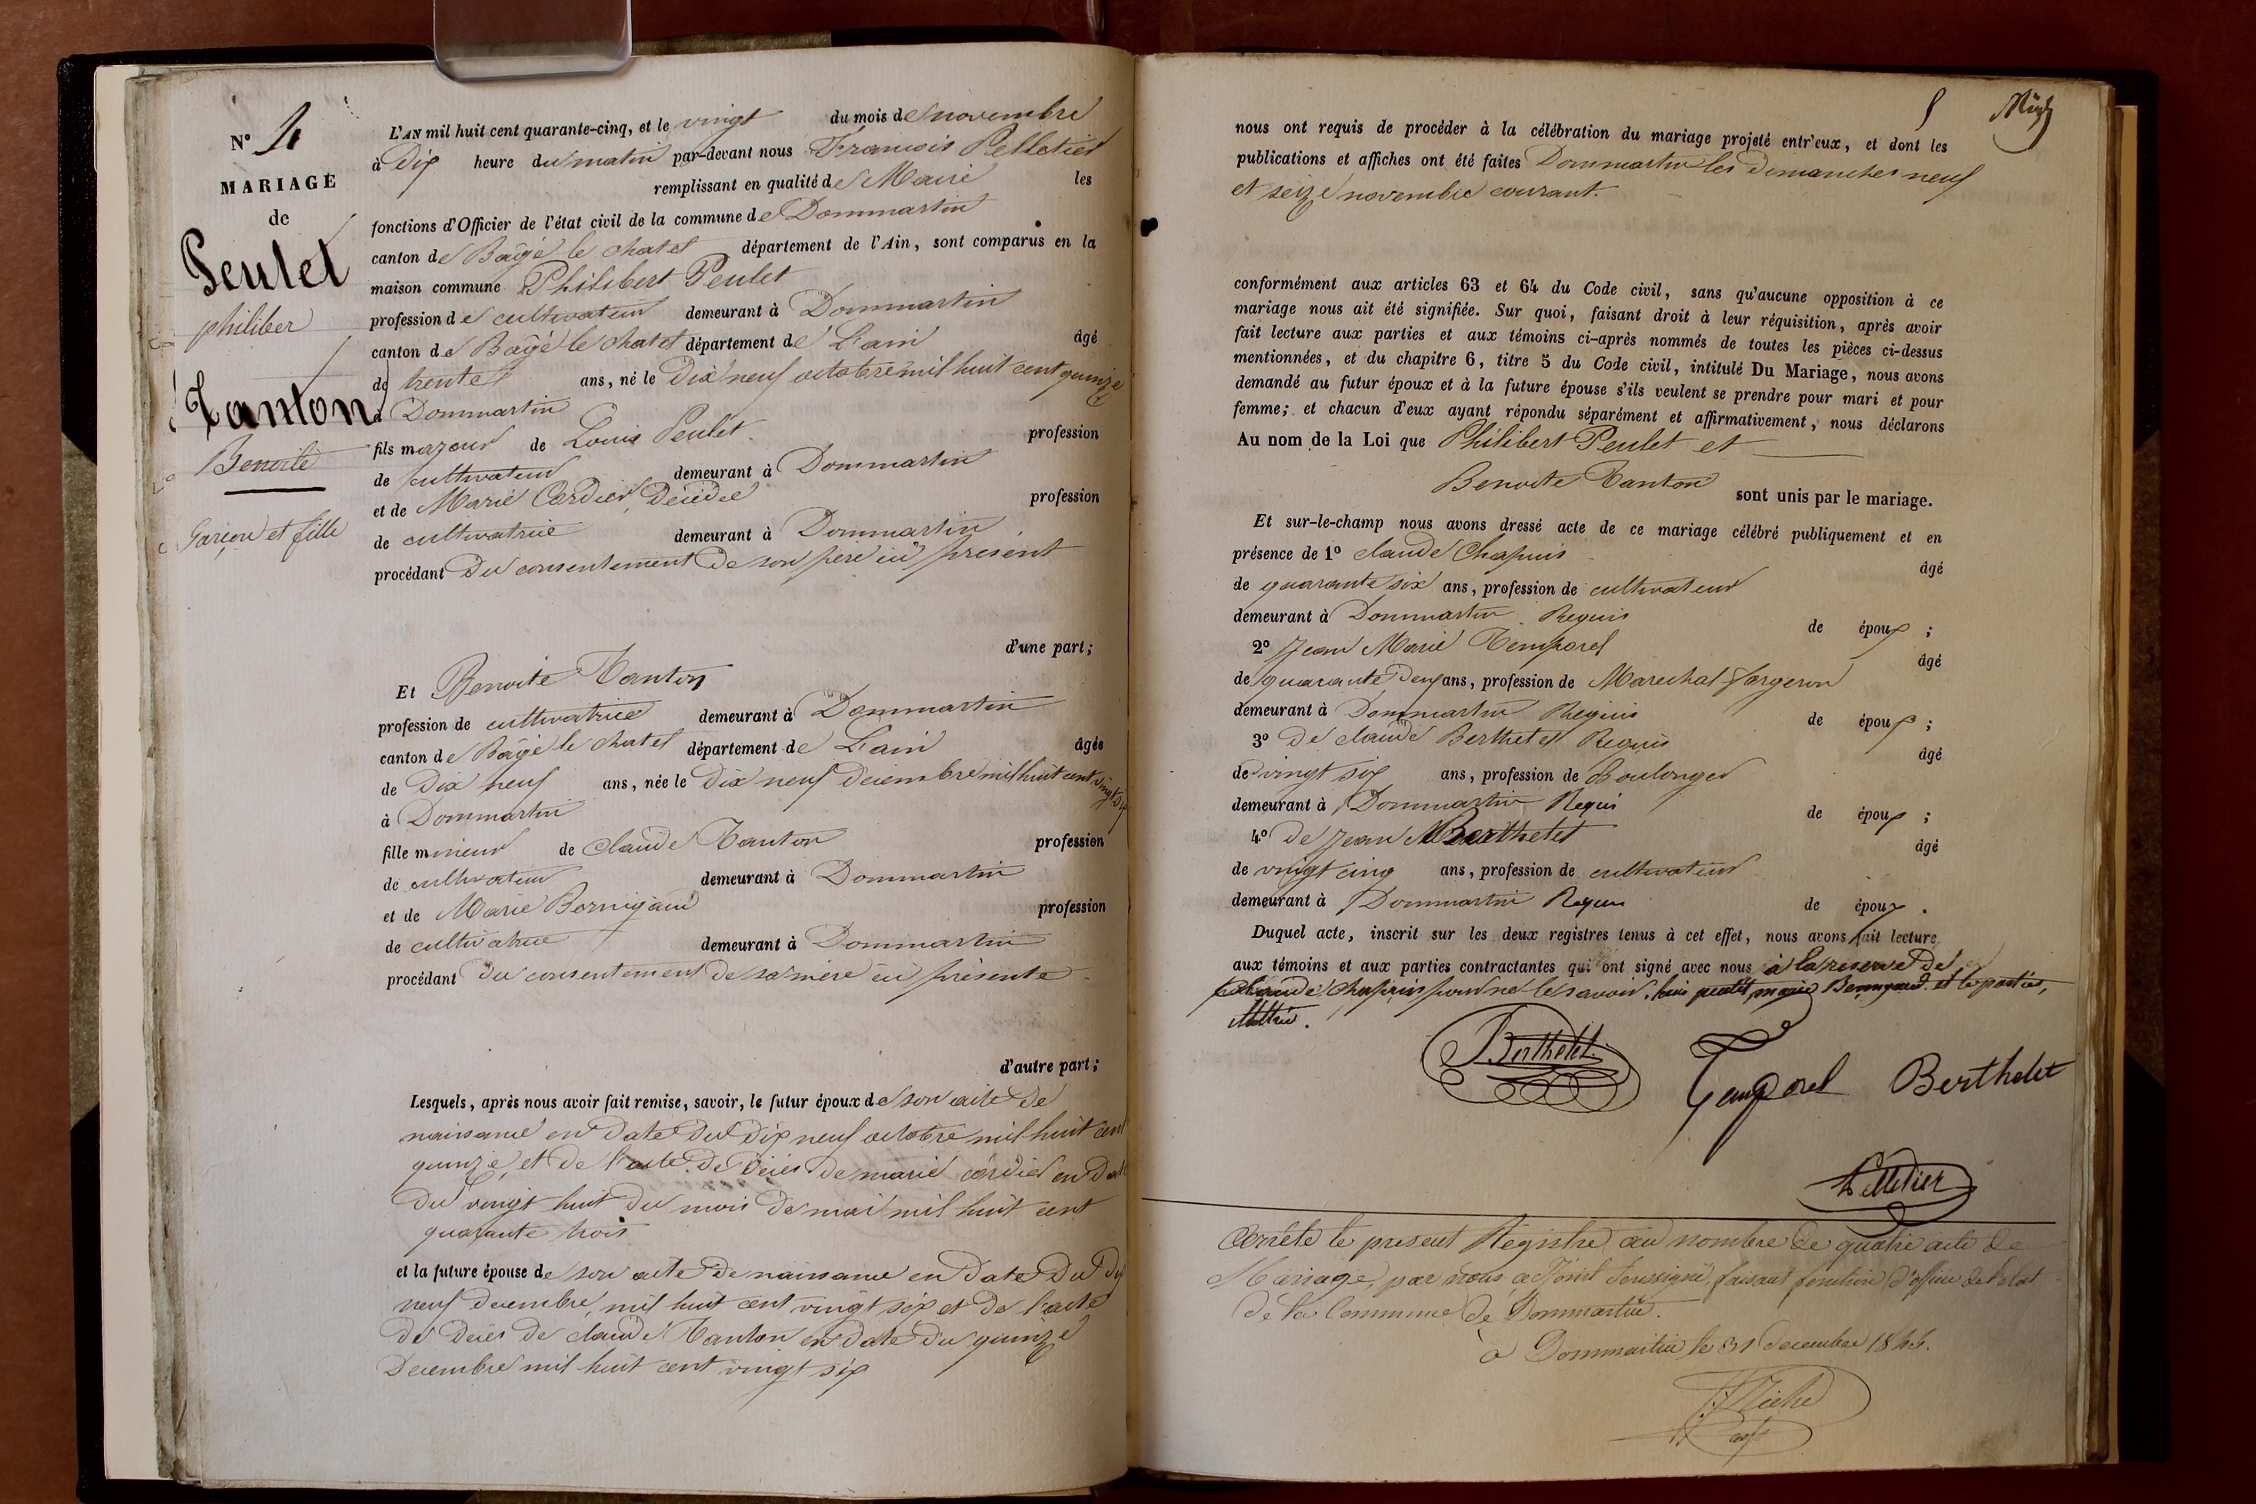 N° 4
MARIAGE
de
Peulet
philiber
Tanton
Benoite
Garçon et fille
L'AN mil huit cent quarante-cinq, et le vingt du mois de novembre
à Dix heure du matin par-devant nous François Pelletier
remplissant en qualité de Maire les
fonctions d'Officier de l'état civil de la commune de Dommartin
canton de Bâgé le chatel département de l'Ain, sont comparus en la
maison commune Philibert Peulet
profession de cultivateur demeurant à Dommartin
canton de Bâgé le chatel département de L'ain âgé
de trente ans, né le Dix neuf octobre mil huit cent quinze
à Dommartin
fils majeur de Louis Peulet profession
de cultivateur demeurant à Dommartin
et de Marie Cordier, Décédée profession
de cultivatrice demeurant à Dommartin
procédant Du consentement De son père ici présent
d'une part;
Et Benoite Tanton
profession de cultivatrice demeurant à Dommartin
canton de Bâgé le chatel département de L'ain âgée
de Dix neuf ans, née le Dix neuf Decembre mil huit cent vingt six
à Dommartin
fille mineur de Claude Tanton profession
de cultivateur demeurant à Dommartin
et de Marie profession
de cultivatrice demeurant à Dommartin
procédant du consentement de sa mère ici présente
d'autre part;
Lesquels, après nous avoir fait remise, savoir, le futur époux de son acte de
naissance en Date Du Dix neuf octobre mil huit cent
quinze, et de l'acte De Déces de marie cordier en Date
Du vingt huit du mois de mai mil huit cent
quarante trois
et la future épouse de son acte De naissance en Date Du Dix
neuf decembre, mil huit cent vingt six et de l'acte
de Déces de claude Tanton en date du quinze
Decembre mil huit cent vingt six
5
nous ont requis de procéder à la célébration du mariage projeté entr'eux, et dont les
publications et affiches ont été faites Dommartin les Dimanches neuf
et seize novembre courant.
conformément aux articles 63 et 64 du Code civil, sans qu'aucune opposition à ce
mariage nous ait été signifiée. Sur quoi, faisant droit à leur réquisition, après avoir
fait lecture aux parties et aux témoins ci-après nommés de toutes les pièces ci-dessus
mentionnées, et du chapitre 6, titre 5 du Code civil, intitulé Du Mariage, nous avons
demandé au futur époux et à la future épouse s'ils veulent se prendre pour mari et pour
femme; et chacun d'eux ayant répondu séparément et affirmativement, nous déclarons
Au nom de la Loi que Philibert Peulet et
Benoite Tanton sont unis par le mariage.
Et sur-le-champ nous avons dressé acte de ce mariage célébré publiquement et en
présence de 1° claude Chapuis âgé
de quarante six ans, profession de cultivateur
demeurant à Dommartin Requis de époux ;
2° Jean Marie Temporel âgé
de quarante Deux ans, profession de Marechal forgeron
demeurant à Dommartin Requis de époux ;
3° De claude Berthelet Requis âgé
de vingt six ans, profession de Boulanger
demeurant à Dommartin Requis de époux ;
4° de Jean M Berthelet âgé
de vingt cinq ans, profession de cultivateur
demeurant à Dommartin Requis de époux .
Duquel acte, inscrit sur les deux registres tenus à cet effet, nous avons fait lecture
aux témoins et aux parties contractantes qui ont signé avec nous à la reserve De
claude Chapuis pour ne le savoir, Louis peulet, marie et les parties,
Berthelet
Temporel
Berthelet
Pelletier
Arrêté le present Régistre au nombre de quatre acte de
Mariage, par nous adjoint soussigné, faisant fonction d'officier de l'état
de la Commune de Dommartin.
à Dommartin le 31 decembre 1845.